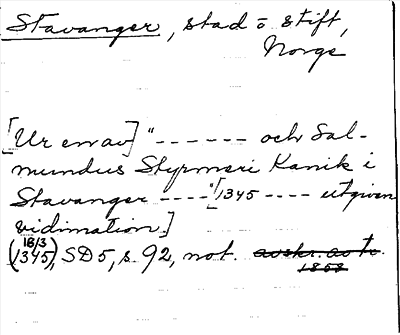 Stavanger, stad o stift,
Norge
[Ur en av] "------ och Sal-
mundus Styrmeri Kanik i
Stavanger ----" [1345 ---- utgiven
vidimation.]
18/3
(1345), SD5, s. 92, not. avskr. av tr.
1858